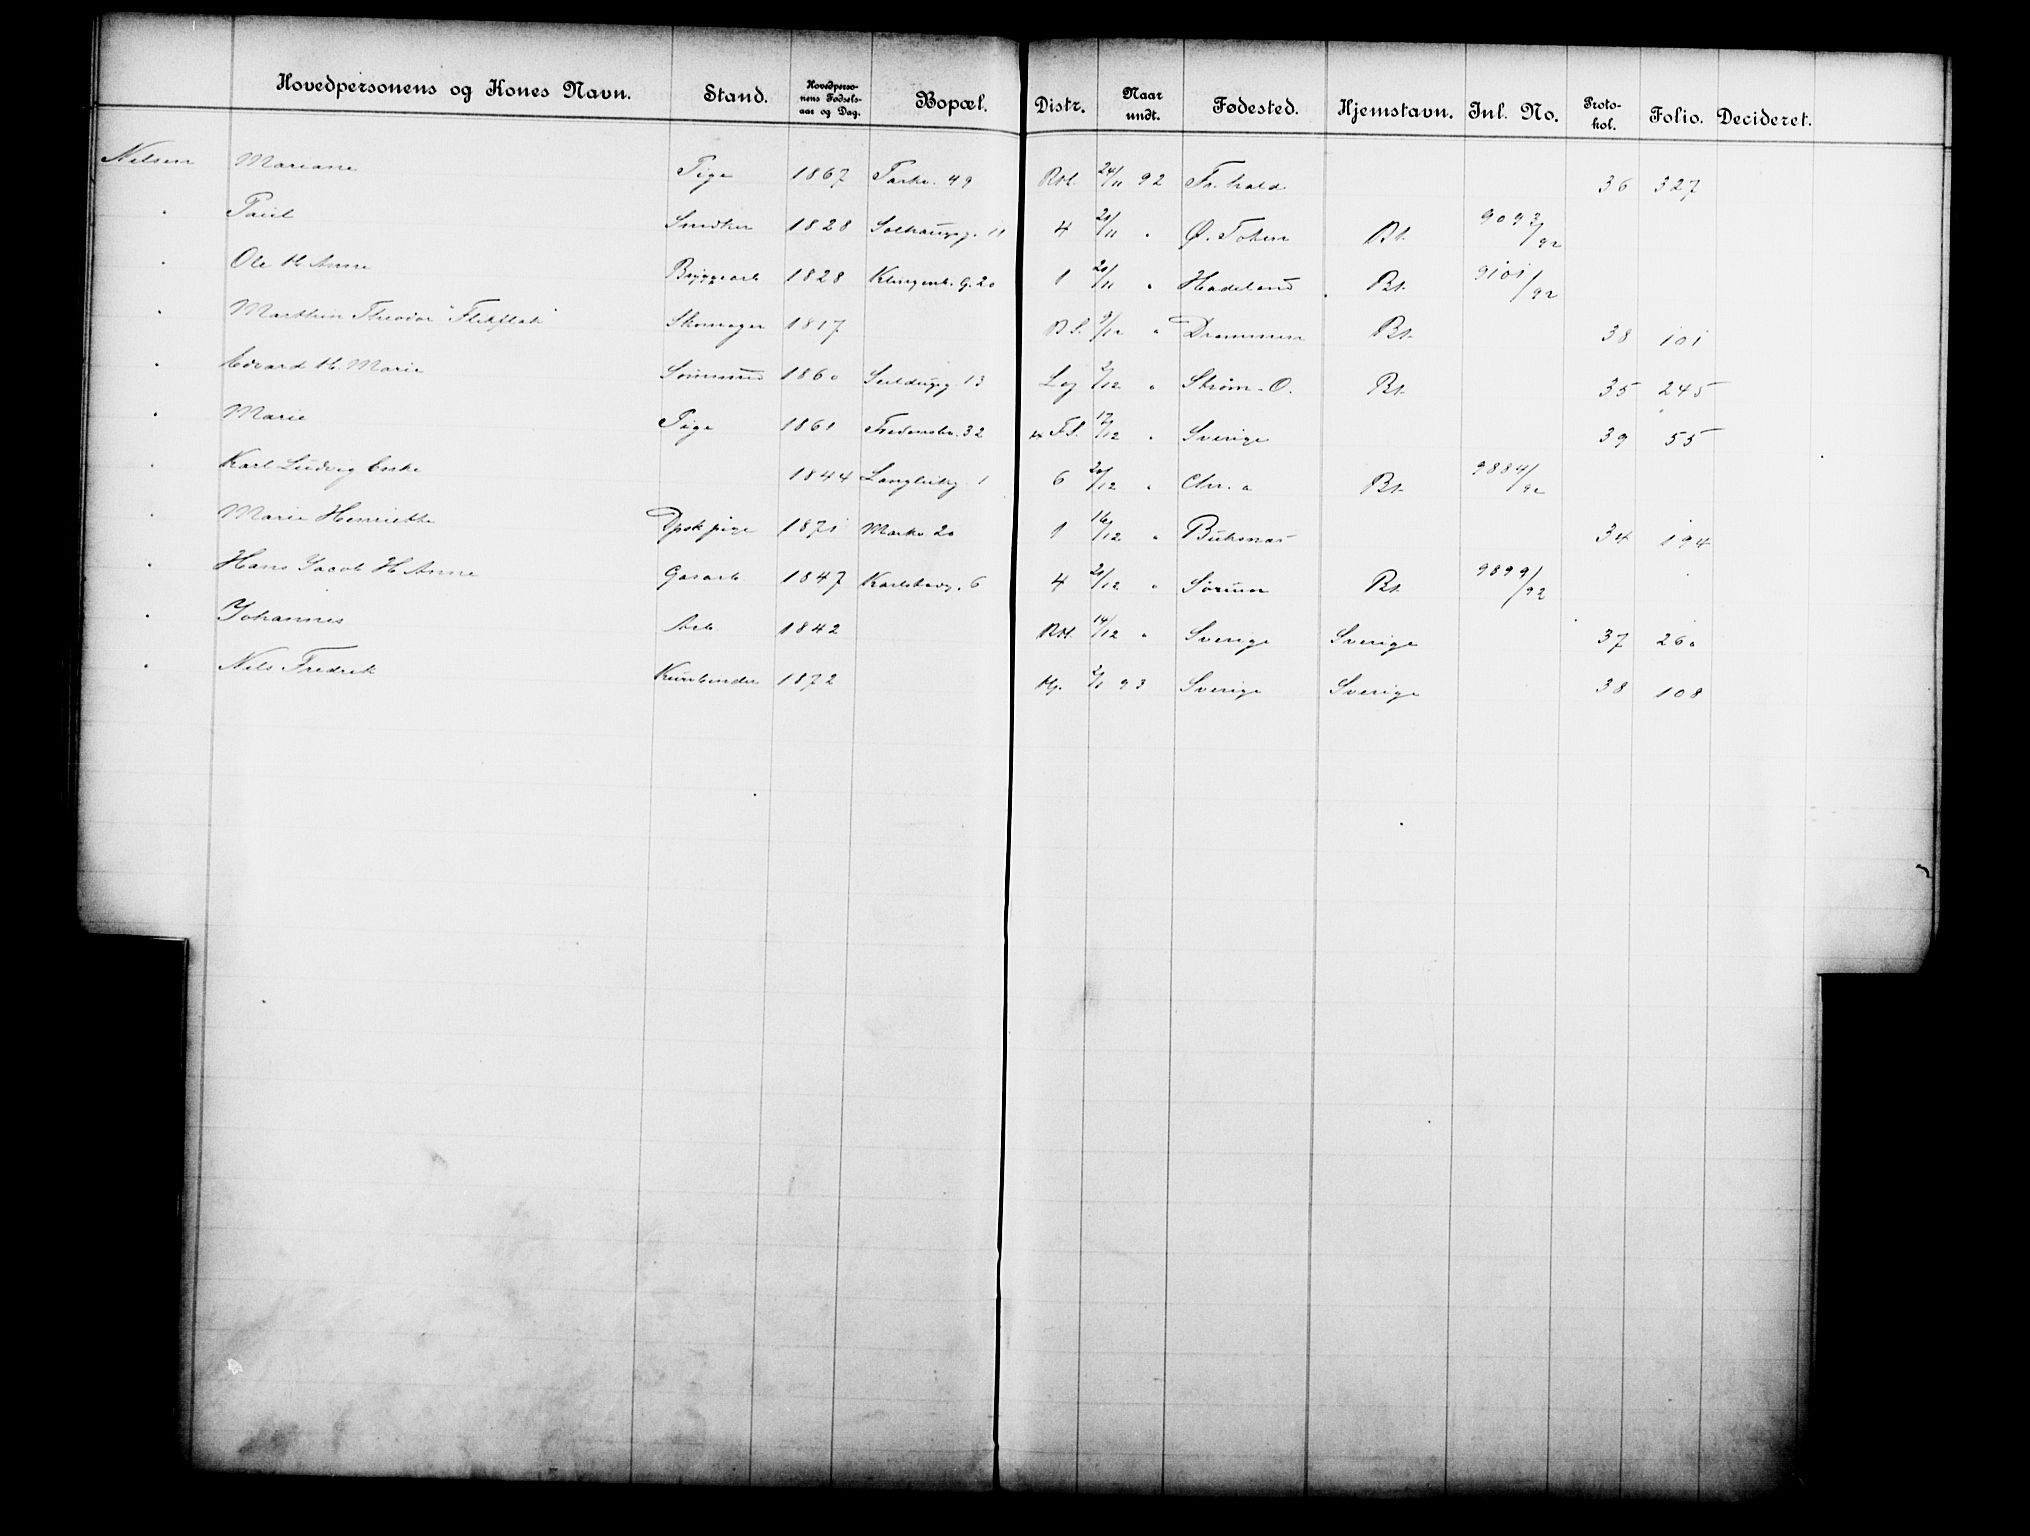 Hovedpersonens og Kones Navn. Stand. Hovedperso-nens Fødsels-aar og Dag. Bopæl. Distr. Naar undt. Fødested. Hjemstavn. Inl. No. Proto-kol. Folio. Decideret.
Nilsen Mariane Pige 1867 49 RH. 24/11 92 Fr.hald 36 327
" Paul Snedker 1828 11 4 21/11 " Ø. Toten Bt. 9093/92
" Ole H. Anne Bryggearb 1828 Klingenb. G. 20 1 21/11 " Hadeland Bt. 9101/92
" Marthin Theodor "Flikflak" Skomager 1817 " Drammen Bt. 38 101
" Edvard H. Marie Sømmand 1860 Seilduggg. 13 2/12 " Strøm-O. Bt. 35 245
" Marie Pige 1861 Fredensb. 32 F.S. 17/12 " Sverige 39 55
" Karl Ludvig Enke 1844 Langleikg. 1 6 20/12 " Chr.a Bt. 9884/92
" Marie Henriette Opsk pige 1871 Markv 20 1 16/12 " 34 194
" Hans Jacob H. Anne Gasarb 1847 Karlsborg. 6 4 20/12 " Sørum Bt. 9899/92
" Johannes Arb. 1842 RH. 14/12 " Sverige Sverige 37 260
" Nils Fredrik Kurvbinder 1872 2/1 93 Sverige Sverige 38 108